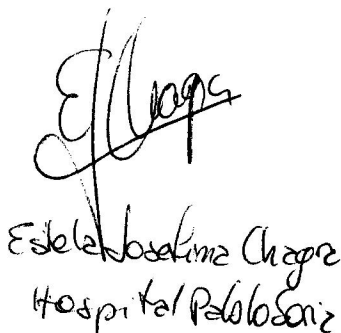 E Chagra
Estela Josefina Chagra
Hospital Pablo Soria